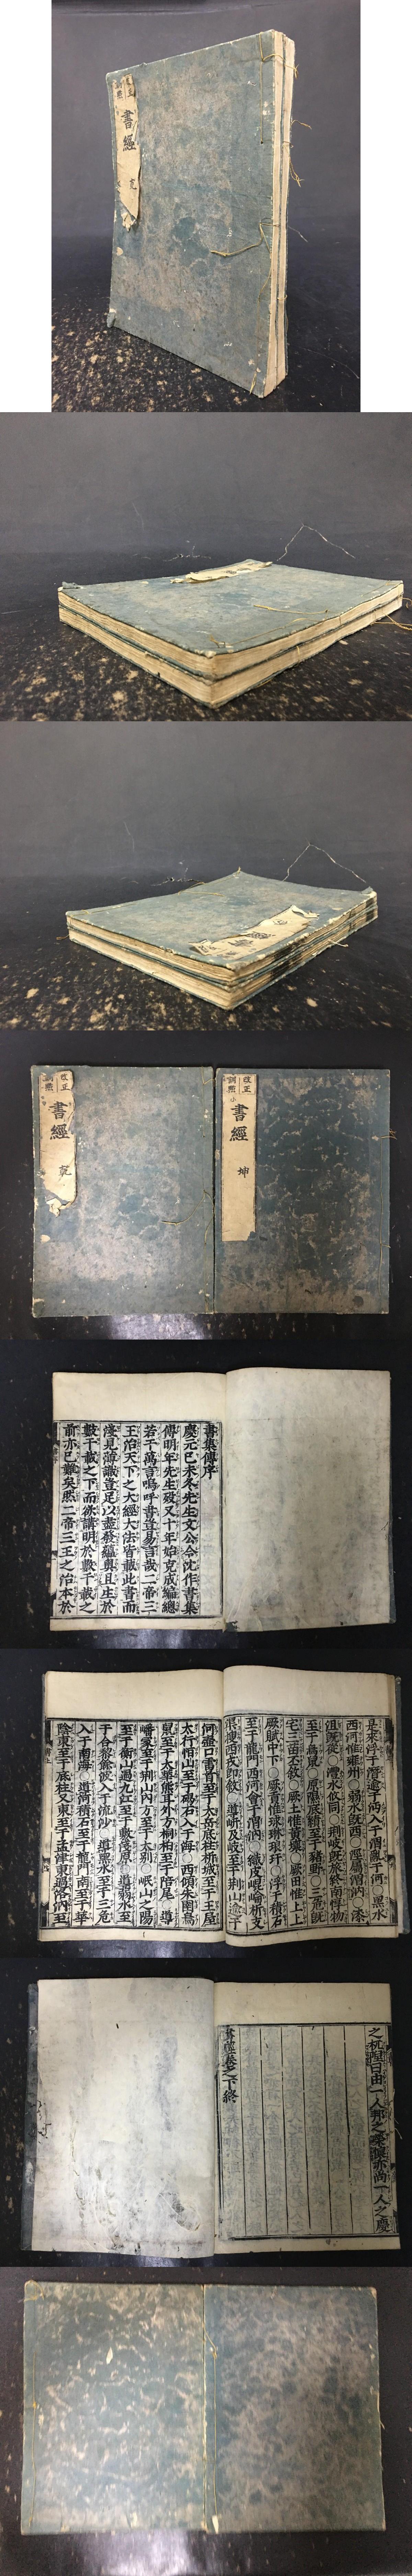 書經
改正
訓點
書經
乾
改正
訓點
書經
坤
書集傳序
慶元己未冬先生文公令沈作書集
傳明年先生歿又十年始克成編總
若干萬言嗚呼書豈易言哉二帝三
王治天下之大經大法皆載此書而
淺見薄識豈足以盡發蘊奧且生於
數千載之下而欲講明於數千載之
前亦已難矣然二帝三王之治本於
是來浮于潛逾于沔入于渭亂于河○黑水
西河惟雍州○弱水既西○涇屬渭汭○漆
沮既從○灃水攸同○荊岐既旅終南惇物
至于鳥鼠○原隰底績至于豬野○三危既
宅三苗丕敘○厥土惟黃壤○厥田惟上上
厥賦中下○厥貢惟球琳琅玕○浮于積石
至于龍門西河會于渭汭○織皮崐崘析支
渠搜西戎即敘○導岍及岐至于荊山逾于
河壺口雷首至于太岳底柱析城至于王屋
太行恒山至于碣石入于海○西傾朱圉鳥
鼠至于太華熊耳外方桐柏至于陪尾○導
嶓冢至于荊山內方至于大別○岷山之陽
至于衡山過九江至于敷淺原○導弱水至
于合黎餘波入于流沙○導黑水至于三危
入于南海○導河積石至于龍門南至于華
陰東至于底柱又東至于孟津東過洛汭至
之杌隉曰由一人邦之榮懷亦尚一人之慶
之下終